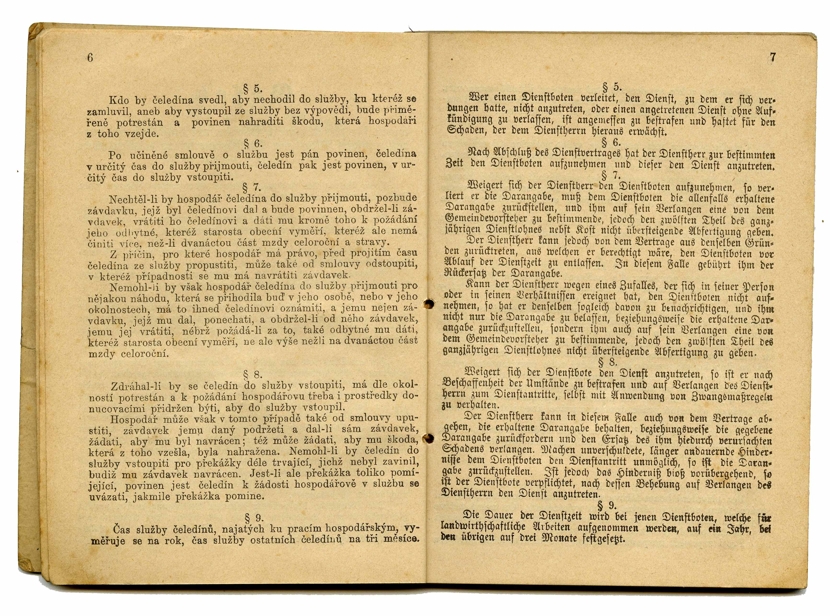 6
§ 5.
Kdo by čeledína svedl, aby nechodil do služby, ku kteréž se
zamluvil, aneb aby vystoupil ze služby bez výpovědi, bude přimě-
řeně potrestán a povinen nahraditi škodu, která hospodáři
z toho vzejde.
§ 6.
Po učiněné smlouvě o službu jest pán povinen, čeledína
v určitý čas do služby přijmouti, čeledín pak jest povinen, v ur-
čitý čas do služby vstoupiti.
§ 7.
Nechtěl-li by hospodář čeledína do služby přijmouti, pozbude
závdavku, jejž byl čeledínovi dal a bude povinnen, obdržel-li zá-
vdavek, vrátiti ho čeledínovi a dáti mu kromě toho k požádání
jeho odbytné, kteréž starosta obecní vyměří, kteréž ale nemá
činiti více, než-li dvanáctou část mzdy celoroční a stravy.
Z příčin, pro které hospodář má právo, před projitím času
čeledína ze služby propustiti, může také od smlouvy odstoupiti,
v kteréž případnosti se mu navrátiti závdavek.
Nemohl-li by však hospodář čeledína do služby přijmouti pro
nějakou náhodu, která se přihodila buď v jeho osobě, nebo v jeho
okolnostech, má to ihned čeledínovi oznámiti, a jemu nejen zá-
vdavku, jejž mu dal, ponechati, a obdržel-li od něho závdavek,
jemu jej vrátiti, nébrž požádá-li za to, také odbytné mu dáti,
kteréž starosta obecní vyměří, ne ale výše nežli na dvanáctou část
mzdy celoroční.
§ 8.
Zdráhal-li by se čeledín do služby vstoupiti, má dle okol-
ností potrestán a k požádání hospodářovu třeba i prostředky do-
nucovacími přidržen býti, aby do služby vstoupil.
Hospodář může však v tomto případě také od smlouvy upu-
stiti, závdavek jemu daný podržeti a dal-li sám závdavek,
žádati, aby mu byl navrácen; též může žádati, aby mu škoda,
která z toho vzešla, byla nahražena. Nemohl-li by čeledín do
služby vstoupiti pro překážky déle trvající, jichž nebyl zavinil,
budiž mu závdavek navrácen. Jest-li ale překážka toliko pomí-
jející, povinen jest čeledín k žádosti hospodářově v službu se
uvázati, jakmile překážka pomine.
§ 9.
Čas služby čeledínů, najatých ku pracím hospodářským, vy-
měřuje se na rok, čas služby ostatních čeledínů na tři měsíce.
7
§ 5.
Wer einen Dienstboten verleitet, den Dienst, zu dem er sich ver-
dungen hatte, nicht anzutreten, oder einen angetretenen Dienst ohne Auf-
kündigung zu verlassen, ist angemessen zu bestrafen und haftet für den
Schaden, der dem Dienstherrn hieraus erwächst.
§ 6.
Nach Abschluß des Dienstvertrages hat der Dienstherr zur bestimmten
Zeit den Dienstboten aufzunehmen und dieser den Dienst anzutreten.
§ 7.
Weigert sich der Dienstherr den Dienstboten aufzunehmen, so ver-
liert er die Darangabe, muß dem Dienstboten die allenfalls erhaltene
Darangabe zurückstellen, und ihm auf sein Verlangen eine von dem
Gemeindevorsteher zu bestimmende, jedoch den zwölften Theil des ganz-
jährigen Dienstlohnes nebst Kost nicht übersteigende Abfertigung geben.
Der Dienstherr kann jedoch von dem Vertrage aus denselben Grün-
den zurücktreten, aus welchen er berechtigt wäre, den Dienstboten vor
Ablauf der Dienstzeit zu entlassen. In diesem Falle gebührt ihm der
Rückersatz der Darangabe.
Kann der Dienstherr wegen eines Zufalles, der sich in seiner Person
oder in seinen Verhältnissen ereignet hat, den Dienstboten nicht auf-
nehmen, so hat er denselben sogleich davon zu benachrichtigen, und ihm
nicht nur die Darangabe zu belassen, beziehungsweise die erhaltene Dar-
angabe zurückzustellen, sondern ihm auch auf sein Verlangen eine von
dem Gemeindevorsteher zu bestimmende, jedoch den zwölften Theil des
ganzjährigen Dienstlohnes nicht übersteigende Abfertigung zu geben.
§ 8.
Weigert sich der Dienstbote den Dienst anzutreten, so ist er nach
Beschaffenheit der Umstände zu bestrafen und auf Verlangen des Dienst-
herrn zum Dienstantritte, selbst mit Anwendung von Zwangsmaßregeln
zu verhalten.
Der Dienstherr kann in diesem Falle auch von dem Vertrage ab-
gehen, die erhaltene Darangabe behalten, beziehungsweise die gegebene
Darangabe zurückfordern und den Ersatz des ihm hiedurch verursachten
Schadens verlangen. Machen unverschuldete, länger andauernde Hinder-
nisse dem Dienstboten den Dienstantritt unmöglich, so ist die Daran-
gabe zurückzustellen. Ist jedoch das Hinderniß bloß vorübergehend, so
ist der Dienstbote verpflichtet, nach dessen Behebung auf Verlangen des
Dienstherrn den Dienst anzutreten.
§ 9.
Die Dauer der Dienstzeit wird bei jenen Dienstboten, welche für
landwirthschaftliche Arbeiten aufgenommen werden, auf ein Jahr, bei
den übrigen auf drei Monate festgesetzt.